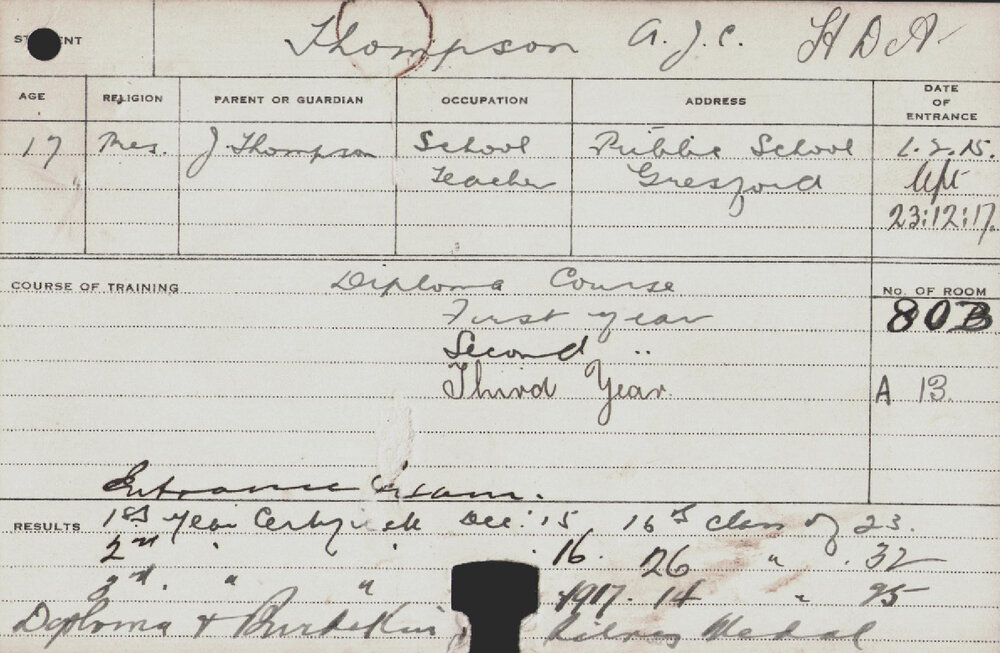 STUDENT Thompson A. J. C. H D A
AGE RELIGION PARENT OR GUARDIAN OCCUPATION ADDRESS DATE OF ENTRANCE
17 Pres. J Thompson School Public School 1.2.15.
Teacher Gresford left
23:12:17.
COURSE OF TRAINING Diploma Course No. OF ROOM
First year 80B
Second "
Third Year A 13.
Entrance Exam.
RESULTS 1st Year Certificate Dec: 15, 16th class of 23.
2nd " " 16. 26 " . 32
3rd. " " 1917. 14 " 25
Diploma & Burdekin Silver Medal